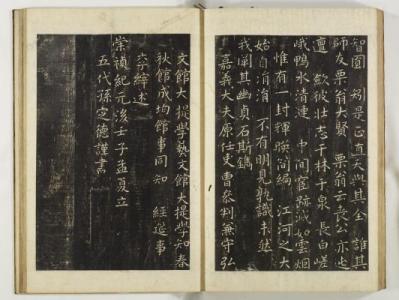 智圓 矧是正直天與其全 誰其
師友栗翁大賢 栗翁云喪公亦
亶 欿彼壯志千林十泉 長白嵯
峨鴨水清連 中間窅跡滅如雲烟
惟有一封輝暎簡編 江河之大
始自涓涓 不有明見孰識未然
我闡其幽貞石斯鐫
嘉義大夫原任吏曹參判兼守弘
文館大提學藝文館大提學知春
秋館成均館事同知 經筵事
李縡述
崇禎紀元後壬子孟夏立
五代孫之德謹書